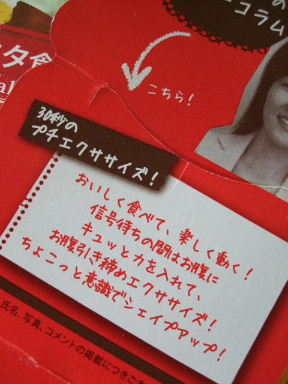 の
コラム
タ食
こちら!
30秒の
プチエクササイズ!
おいしく食べて、楽しく動く!
信号待ちの間はお腹に
キュッと力を入れて、
お腹引き締めエクササイズ!
ちょこっと意識でシェイプアップ!
氏名、写真、コメントの掲載につきご本